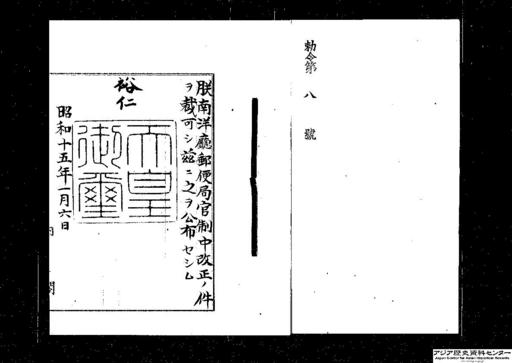 勅令第八號
朕南洋廳郵便局官制中改正ノ件
ヲ裁可シ茲ニ之ヲ公布セシム
裕仁
天皇
御璽
昭和十五年一月六日
アジア歴史資料センター
Japan Center for Asian Historical Records